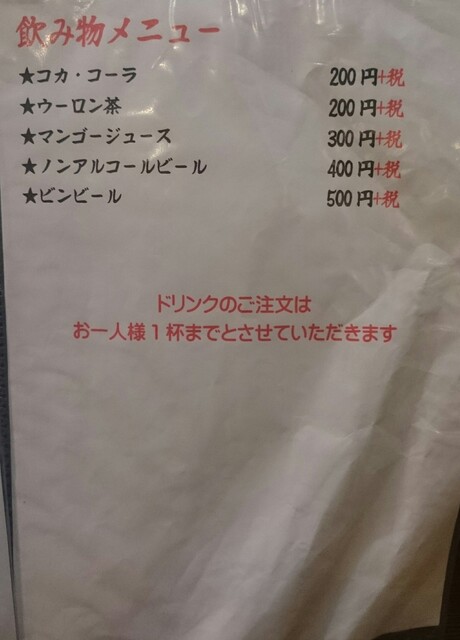 飲み物メニュー
★コカ・コーラ 200円+税
★ウーロン茶 200円+税
★マンゴージュース 300円+税
★ノンアルコールビール 400円+税
★ビンビール 500円+税
ドリンクのご注文は
お一人様1杯までとさせていただきます